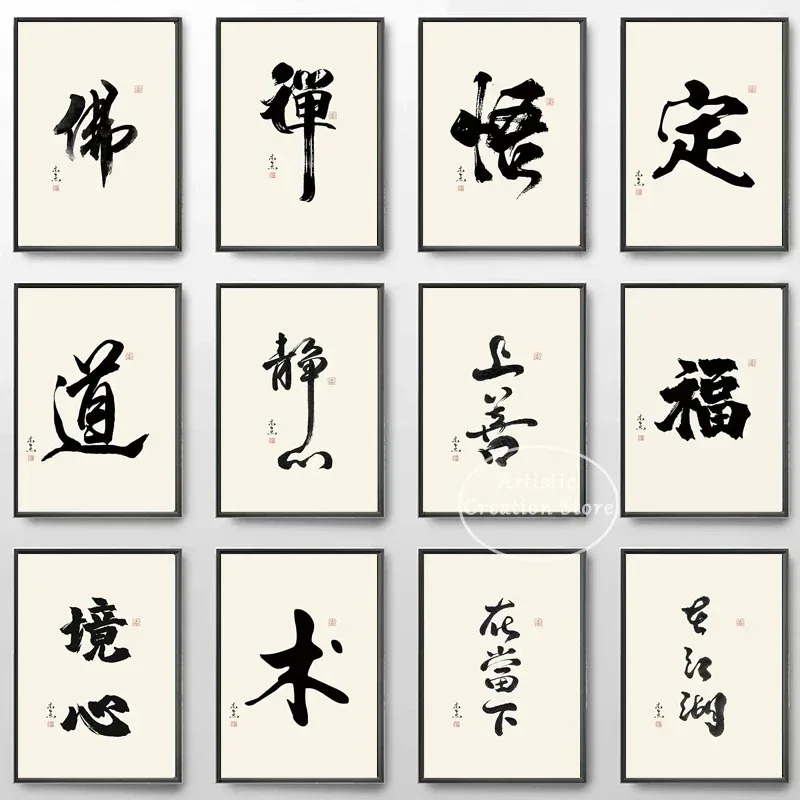 佛
禪
悟
定
道
靜心
上善
福
Artistic
Creation Store
境心
术
在當下
在江湖